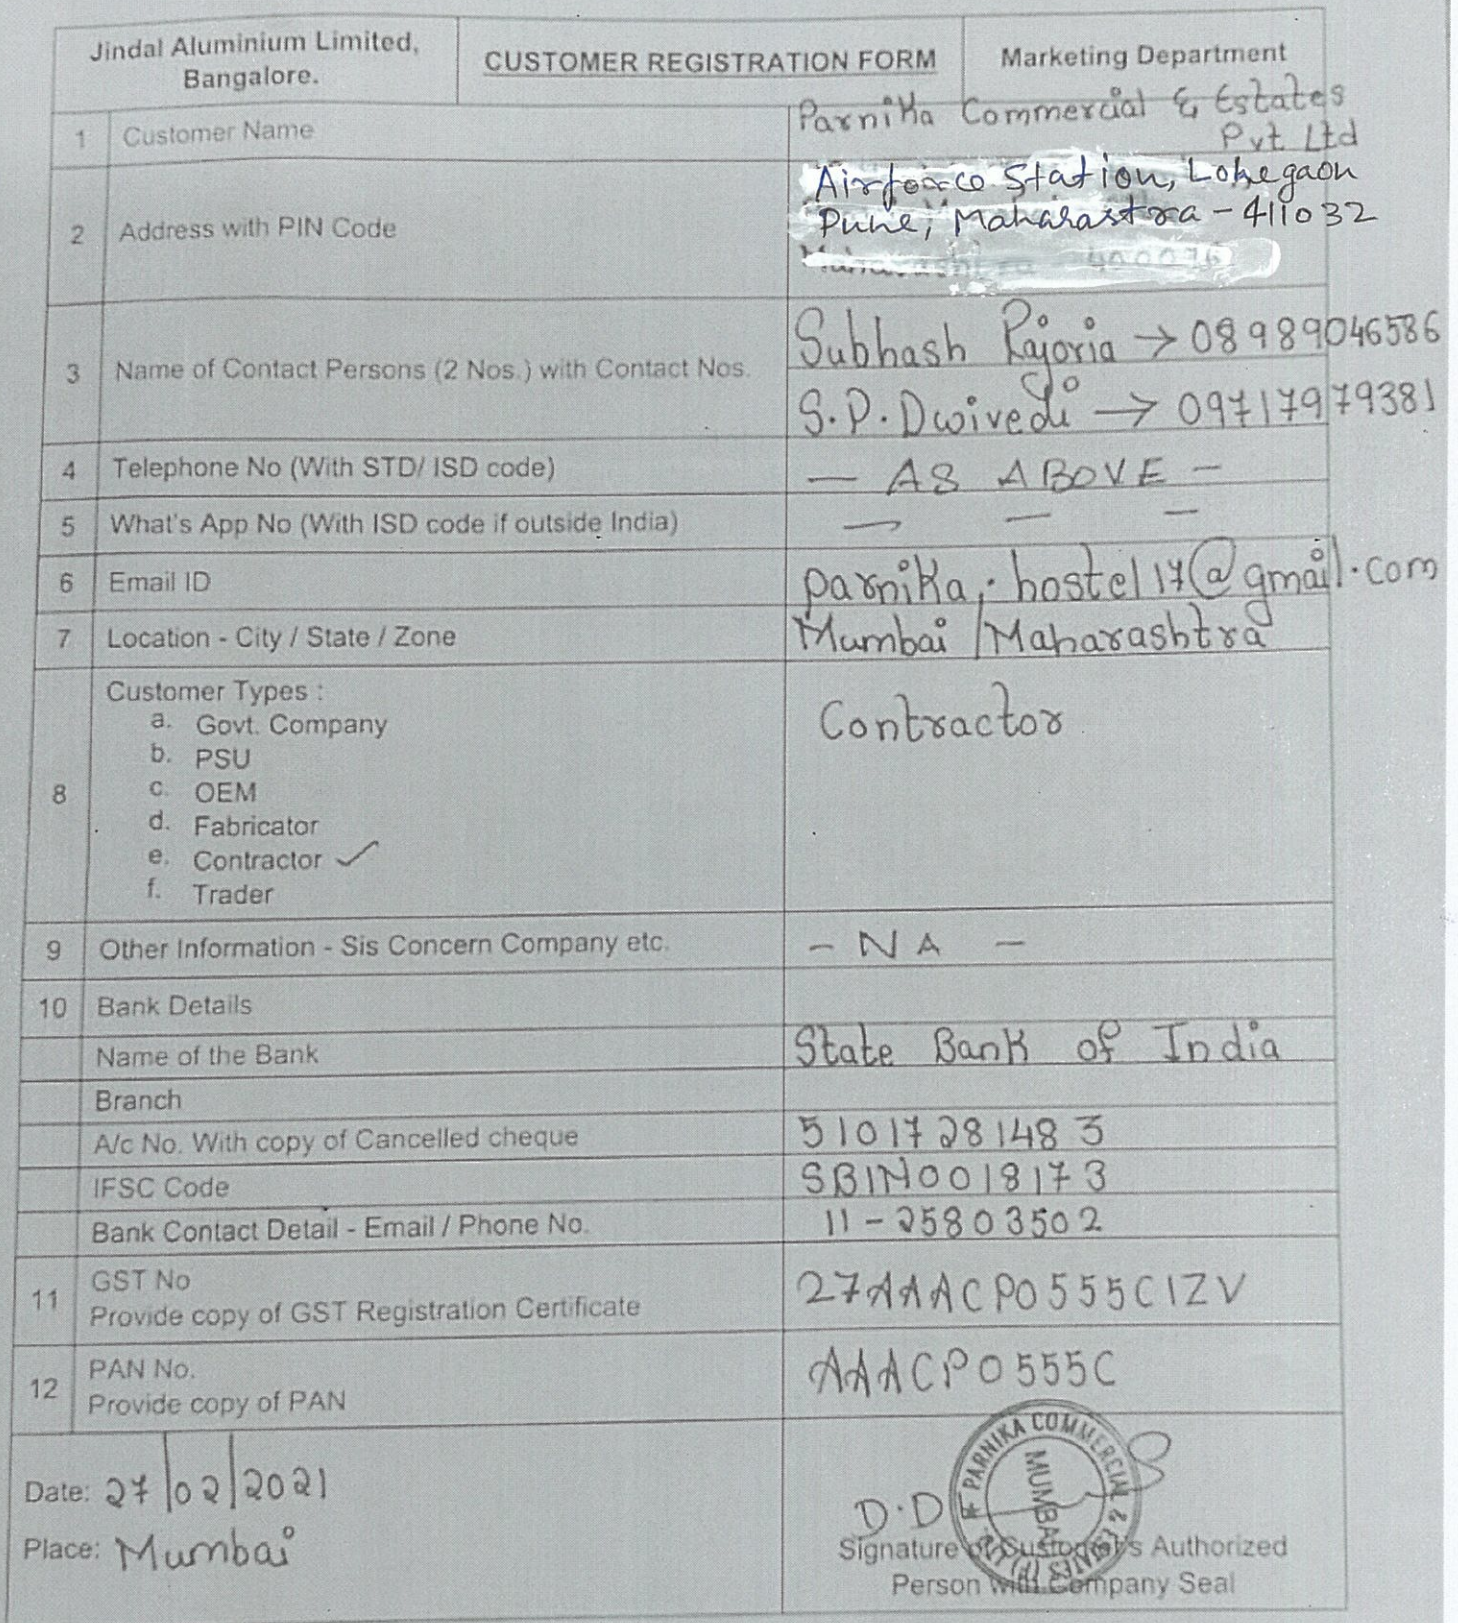 Jindal Aluminium Limited,
Bangalore.
CUSTOMER REGISTRATION FORM
Marketing Department
1 Customer Name
Parnika Commercial & Estates
Pvt Ltd
2 Address with PIN Code
Airforce Station, Lohegaon
Pune, Maharastra - 411032
3 Name of Contact Persons (2 Nos.) with Contact Nos.
Subhash Rajoria → 08989046586
S.P. Dwivedi → 09717979381
4 Telephone No (With STD/ ISD code)
— AS ABOVE —
5 What's App No (With ISD code if outside India)
— — —
6 Email ID
parnika.hostel17@gmail.com
7 Location - City / State / Zone
Mumbai / Maharashtra
8
Customer Types :
a. Govt. Company
b. PSU
c. OEM
d. Fabricator
e. Contractor ✓
f. Trader
Contractor
9 Other Information - Sis Concern Company etc.
- NA -
10 Bank Details
Name of the Bank
State Bank of India
Branch
A/c No. With copy of Cancelled cheque
51017281483
IFSC Code
SBIN0018173
Bank Contact Detail - Email / Phone No.
11-25803502
11
GST No
Provide copy of GST Registration Certificate
27AAACP0555C1ZV
12
PAN No.
Provide copy of PAN
AAACP0555C
Date: 27/02/2021
Place: Mumbai
PARNIKA COMMERCIAL & ESTATES (P) LTD.
MUMBAI
D.D
Signature of Customer's Authorized
Person with Company Seal